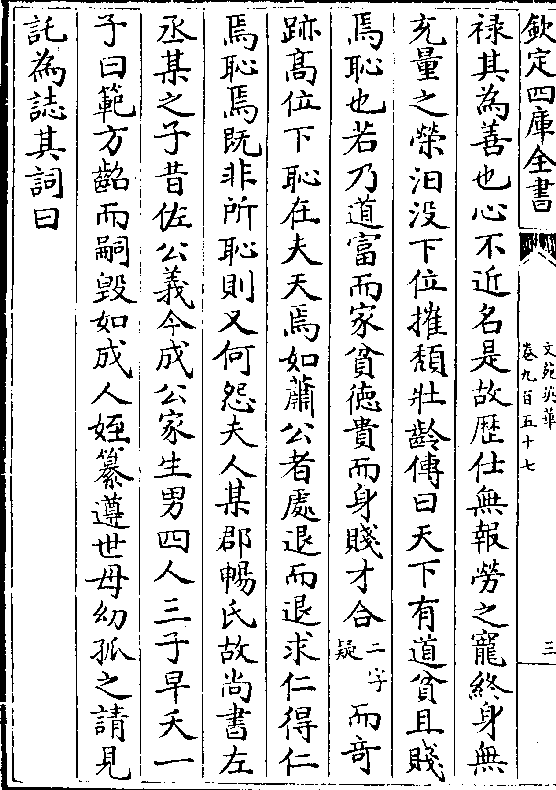 欽定四庫全書
文苑英華
卷九百五十七
三
禄其為善也心不近名是故歴仕無報勞之寵終身無
充量之榮汨没下位摧頽壯齡傳曰天下有道貧且賤
焉恥也若乃道富而家貧徳貴而身賤才合二字疑而竒
跡髙位下恥在夫天焉如蕭公者處退而退求仁得仁
焉恥焉既非所恥則又何怨夫人某郡暢氏故尚書左
丞某之子昔佐公義今成公家生男四人三子早夭一
子曰範方齠而嗣毁如成人姪纂遵世母幼孤之請見
託為誌其詞曰